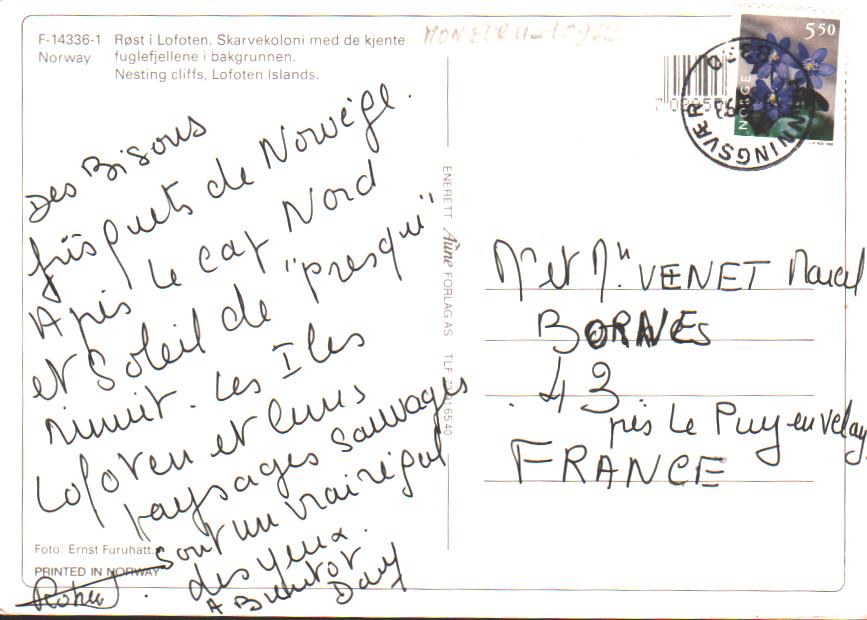 F-14336-1 Røst i Lofoten. Skarvekoloni med de kjente
Norway fuglefjellene i bakgrunnen.
Nesting cliffs, Lofoten Islands.
Des Bisous
frisquets de Norvège.
Après le cap Nord
et Soleil de "presqu'"
minuit. Les Iles
Lofoten et leurs
paysages sauvages
sont un vrai régal
des yeux.
A Bientôt
Dany
Robert
Foto: Ernst Furuhatt.
PRINTED IN NORWAY
ENERETT Aune FORLAG AS TLF
5 50
NORGE
NNINGSVÆR
Mr et Mme VENET Marcel
BORNES
43
près Le Puy en Velay
FRANCE